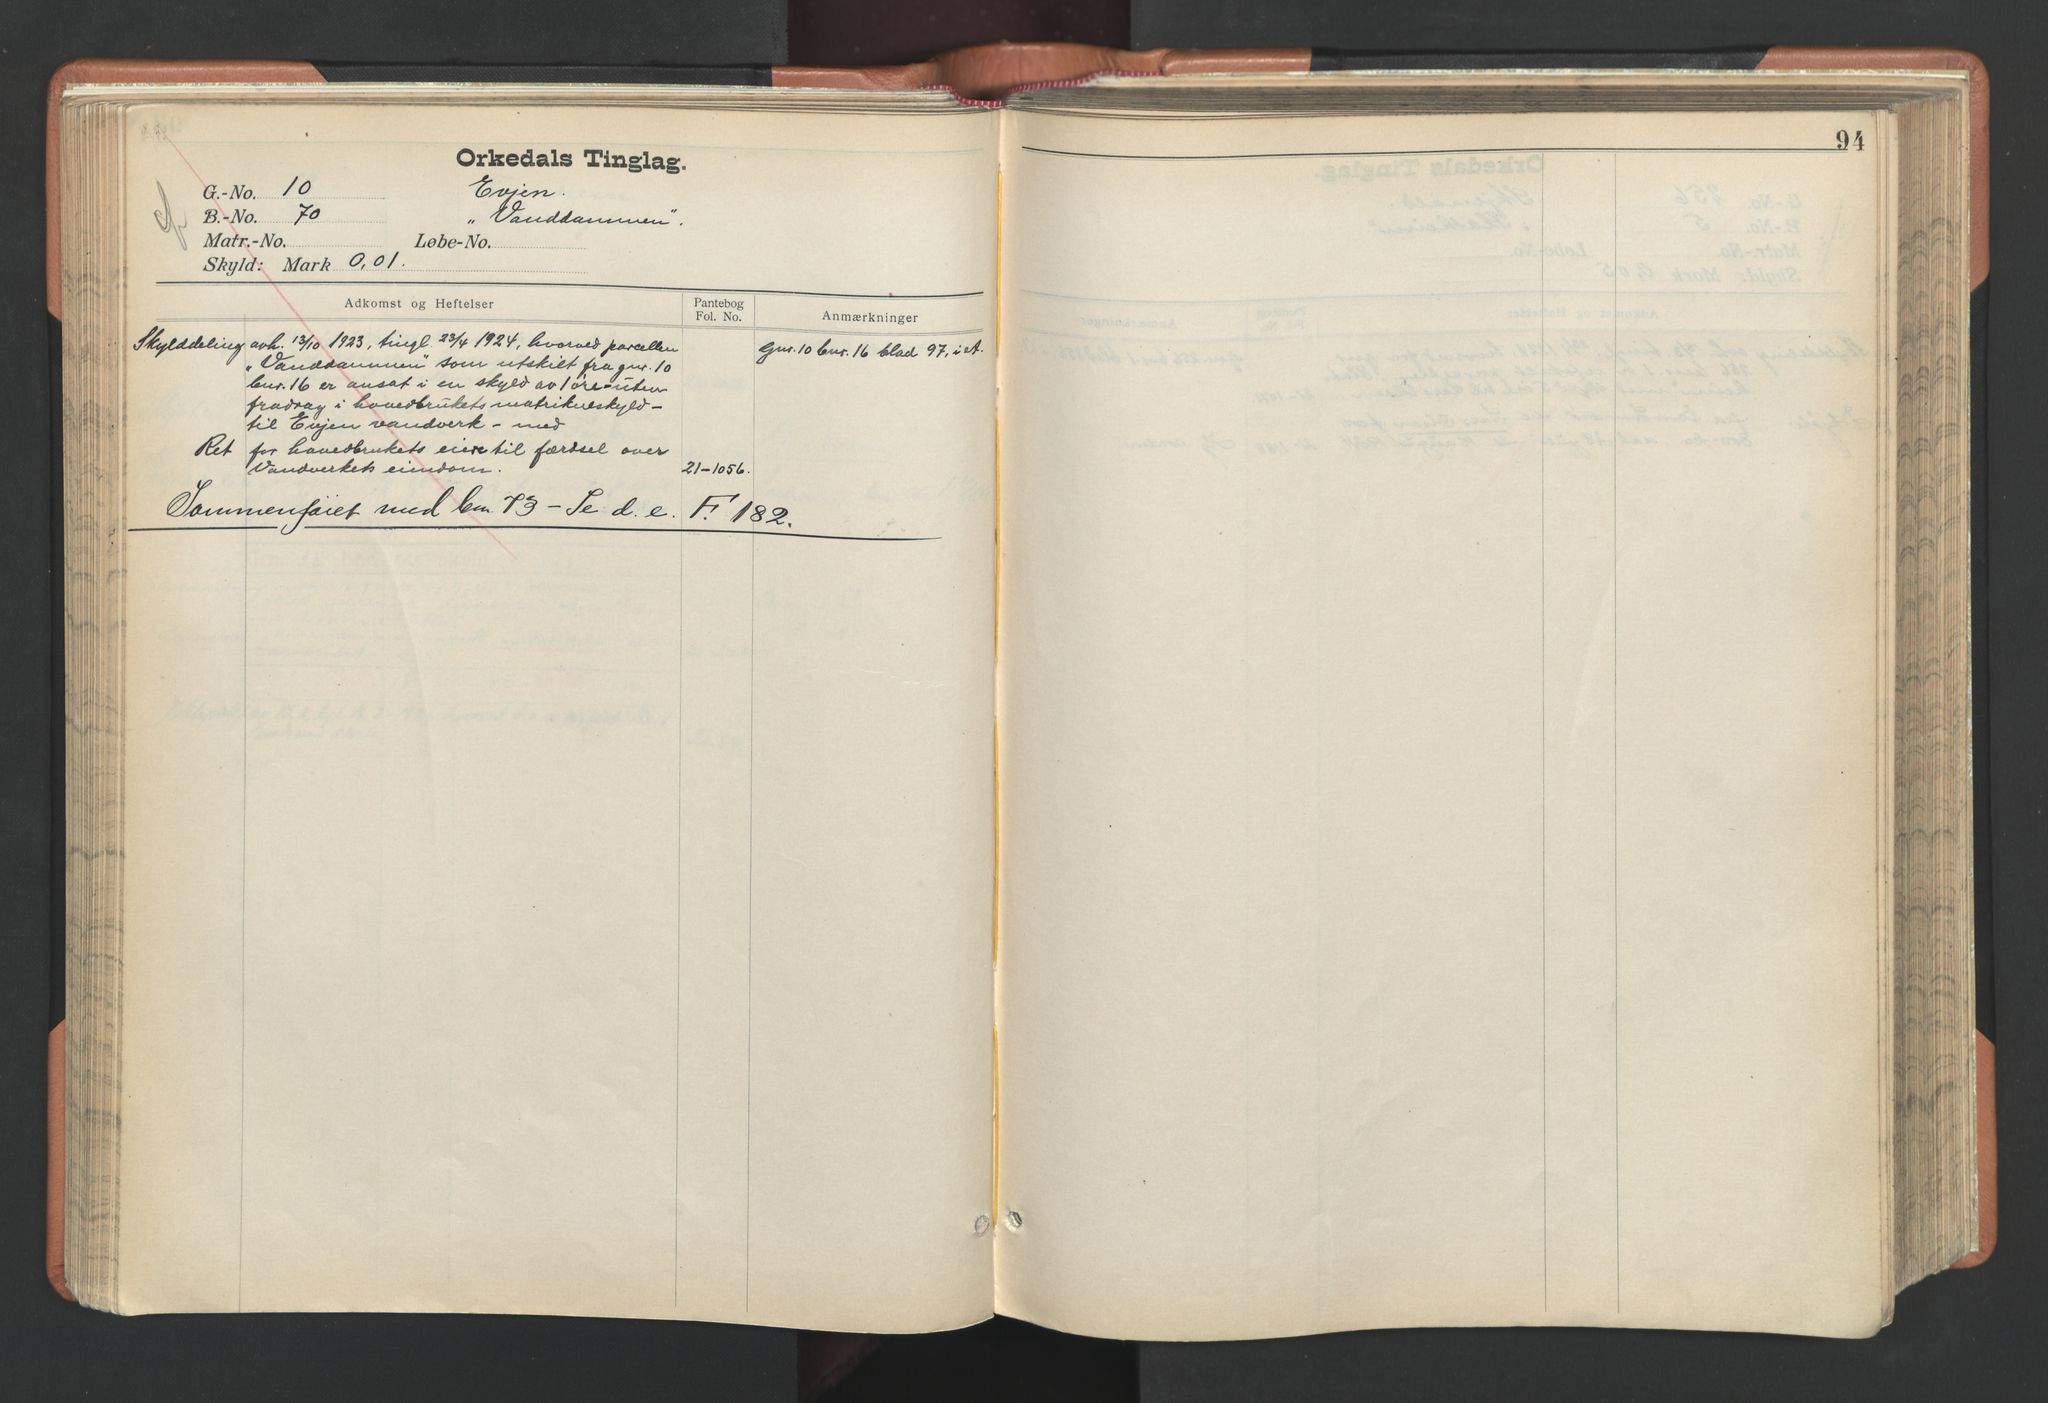 Orkedals Tinglag.
G.-No. 10 Evjen.
B.-No. 70 „Vanddammen".
Matr.-No. Løbe-No.
Skyld: Mark 0,01.
Adkomst og Heftelser Pantebog Fol. No. Anmærkninger
Skylddeling avh. 13/10 1923, tingl. 23/4 1924, hvorved parcellen Gnr. 10 bnr. 16 blad 97, i A.
„Vanddammen" som utskilt fra gnr. 10
bnr. 16 er ansat i en skyld av 1 øre – uten
fradrag i hovedbrukets matrikulskyld –
til Evjen vandverk – med
Ret for hovedbrukets eiere til færdsel over
Vandverkets eiendom. 21–1056.
Sammenføiet med bnr. 73 – Se d. e. F. 182.
94